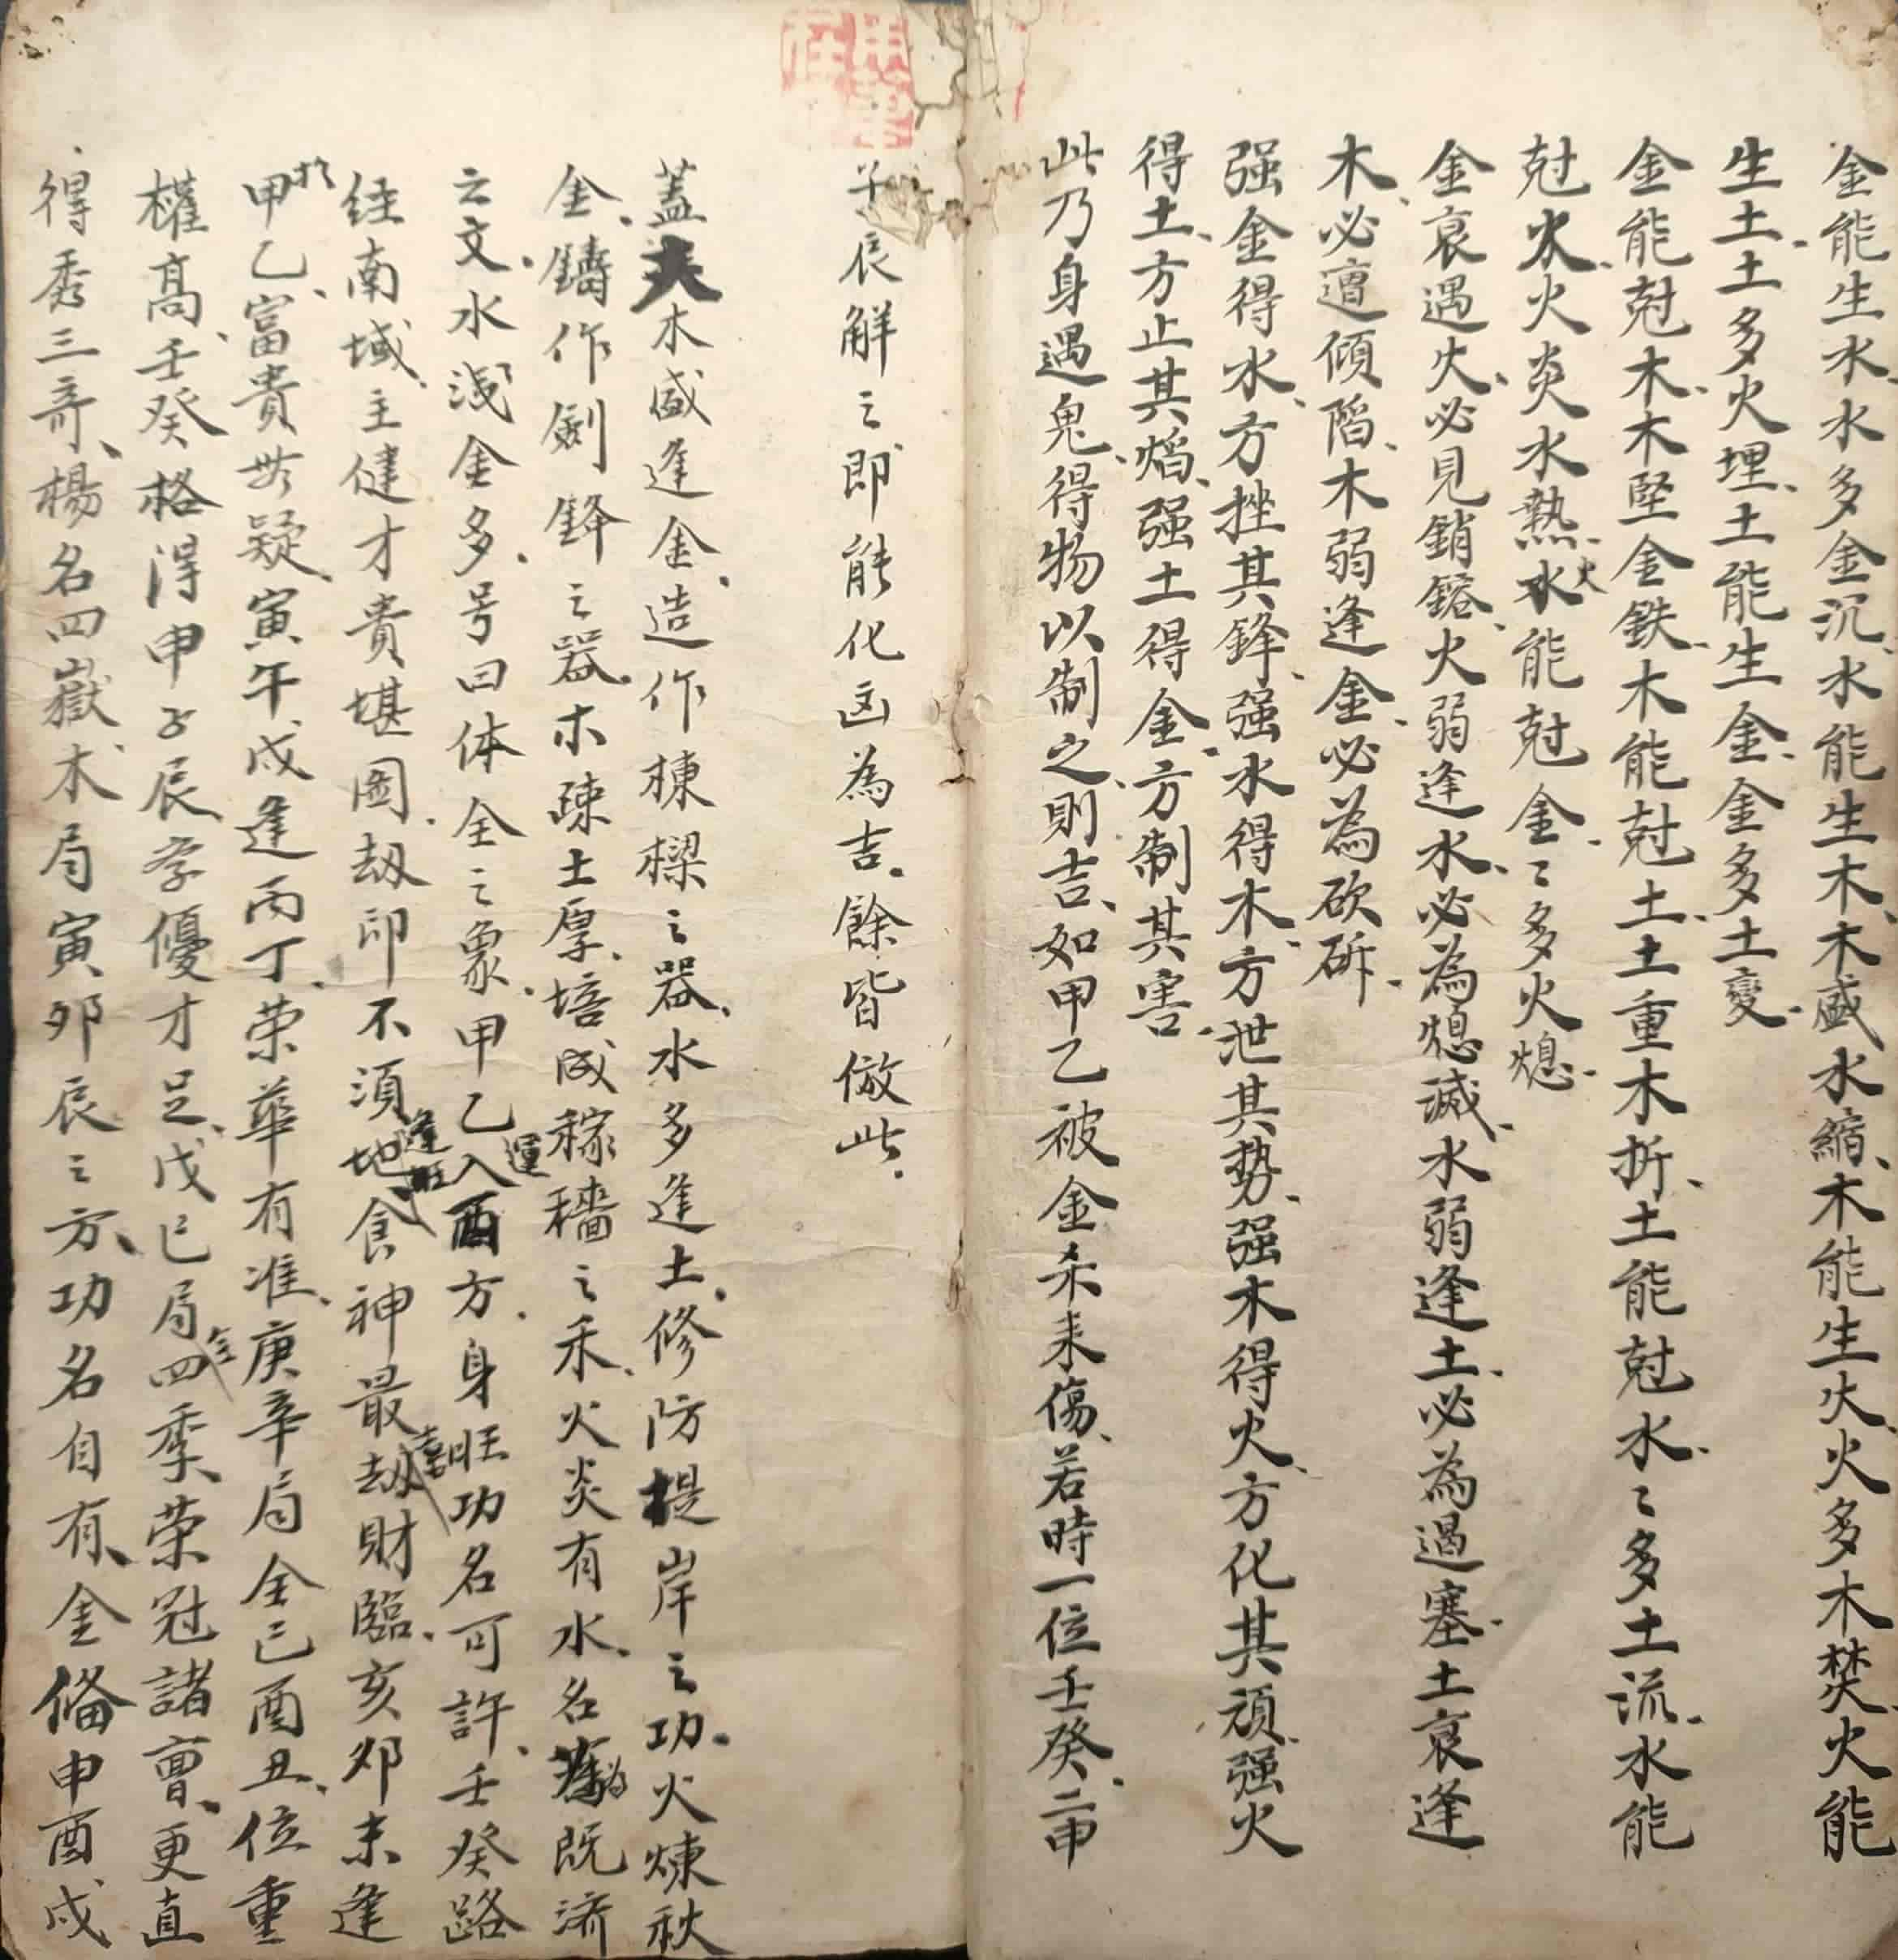 金能生水、水多金沉、水能生木、木盛水縮、木能生火、火多木焚、火能
生土、土多火埋、土能生金、金多土變、
金能尅木、木堅金鉄、木能尅土、土重木折、土能尅水、〻多土流、水能
尅火、火炎水熱、火能尅金、〻多火熄、
金衰遇火、必見銷鎔、火弱逢水、必為熄滅、水弱逢土、必為過塞、土衰逢
木、必遭傾陷、木弱逢金、必為砍斫、
强金得水、方挫其鋒、强水得木、方泄其势、强木得火、方化其頑、强火
得土、方止其焰、强土得金、方制其害、
此乃身遇鬼、得物以制之、則吉、如甲乙被金杀耒傷、若時一位壬癸、二申
子辰解之、即能化凶為吉、餘皆倣此、
蓋夫木盛逢金、造作棟樑之器、水多逢土、修防提岸之功、火煉秋
金、鑄作劍鋒之器、木疎土厚、培成稼穡之禾、火炎有水、名為既济
之文、水浅金多、号曰体全之象、甲乙運入酉方、身旺功名可許、壬癸路
经南域、主健才貴堪圖、劫印不須逢旺地、食神最喜劫財臨、亥卯未逢
於甲乙、富貴無疑、寅午戌逢丙丁、荣華有准、庚辛局全巳酉丑、位重
權高、壬癸格得申子辰、孛優才足、戊己局全四季、荣冠諸曹、更直
得秀三奇、楊名四嶽、木局寅卯辰之方、功名自有、金俻申酉戌